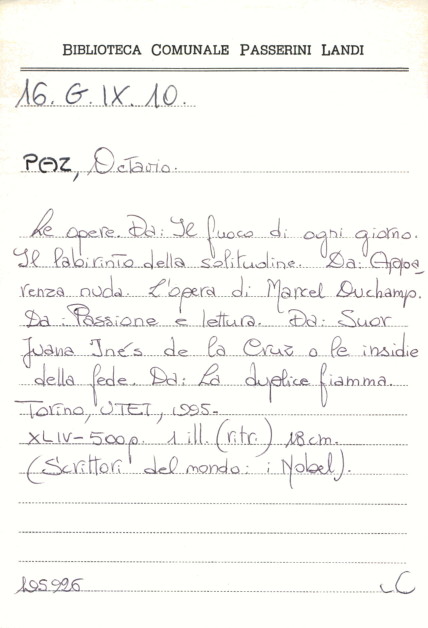 BIBLIOTECA COMUNALE PASSERINI LANDI
16. G. IX. 10.
PAZ, Octavio.
Le opere. Da: Il fuoco di ogni giorno.
Il labirinto della solitudine. Da: Appa_
renza nuda. L'opera di Marcel Duchamp.
Da: Passione e lettura. Da: Suor
Juana Inés de la Cruz o le insidie
della fede. Da: La duplice fiamma.
Torino, UTET, 1995.
XLIV-500p. 1 ill. (ritr.) 18 cm.
(Scrittori del mondo: i Nobel).
195926